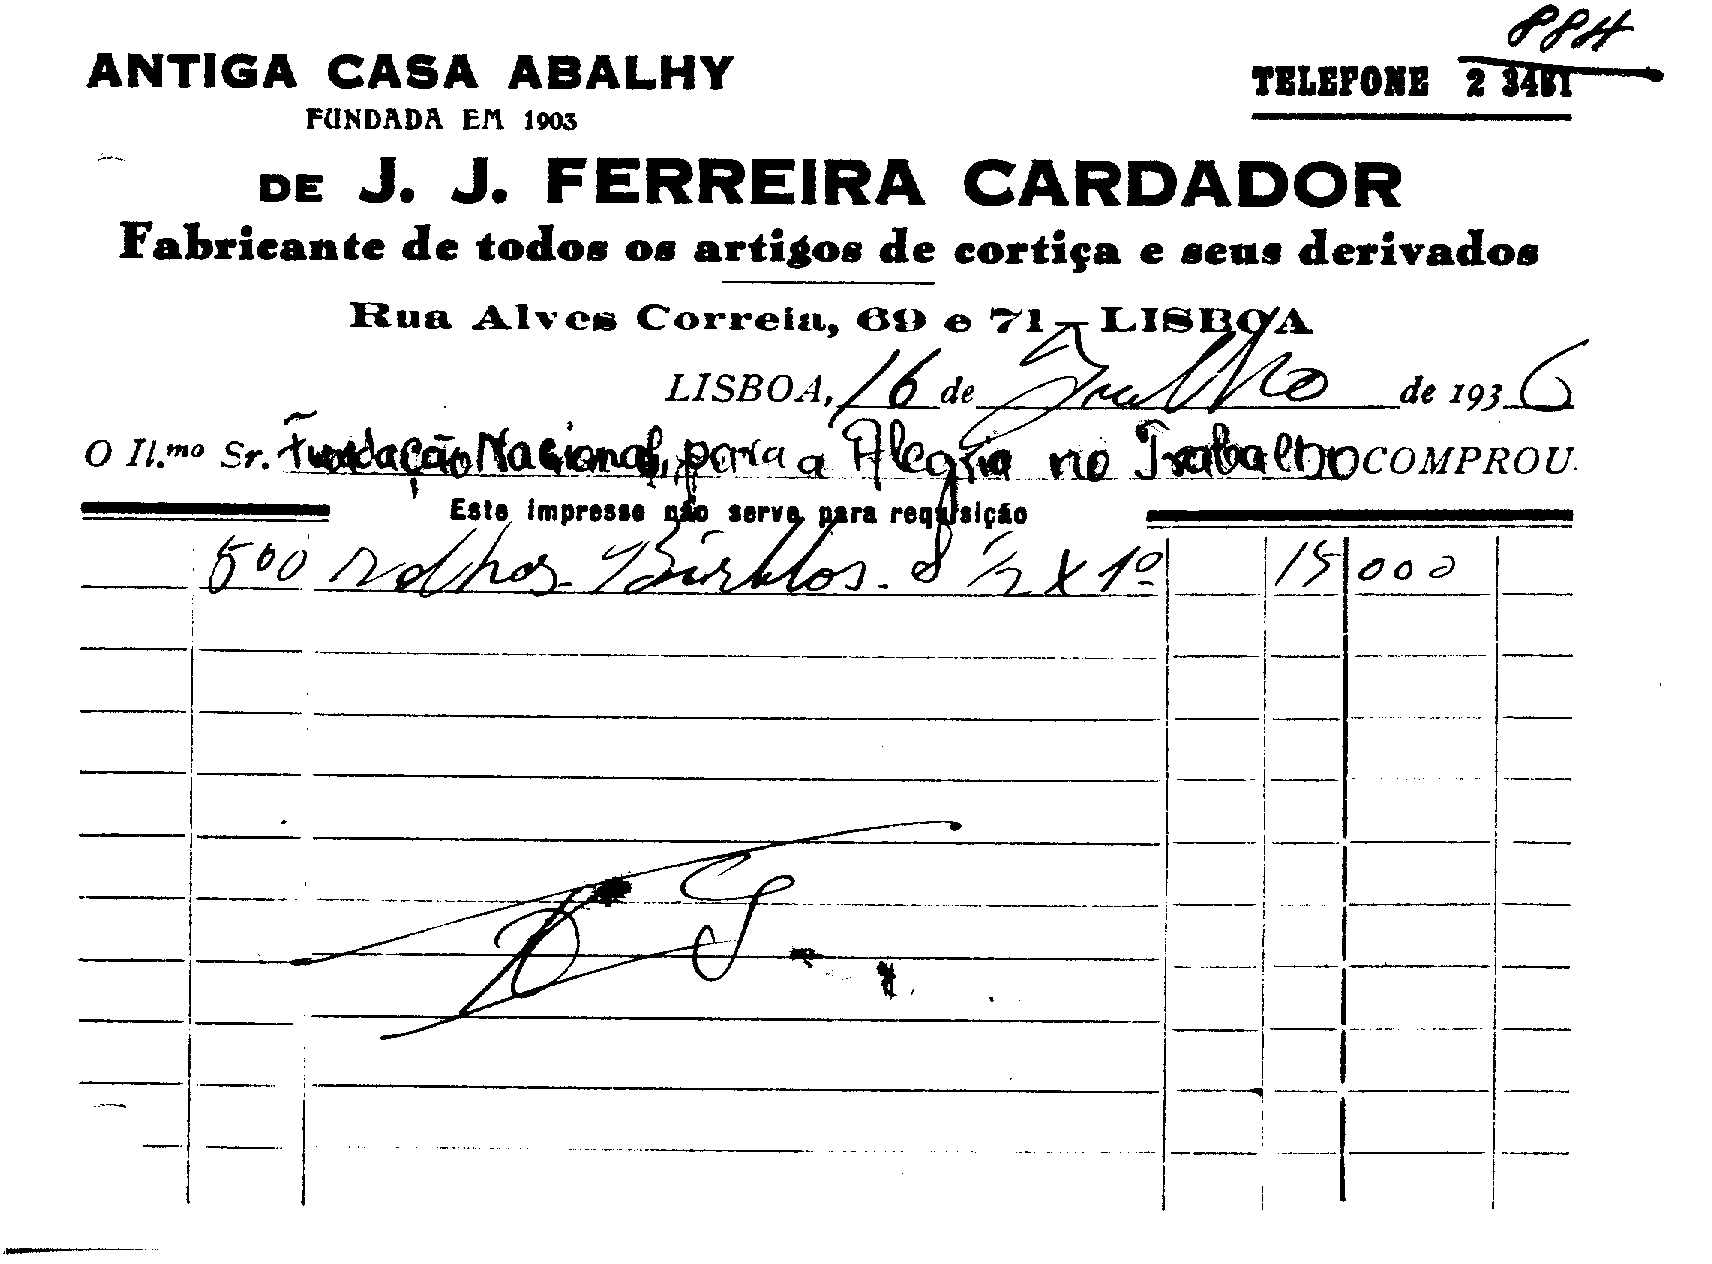 884
ANTIGA CASA ABALHY
TELEFONE 2 3481
FUNDADA EM 1903
DE J. J. FERREIRA CARDADOR
Fabricante de todos os artigos de cortiça e seus derivados
Rua Alves Correia, 69 e 71 - LISBOA
LISBOA, 16 de Julho de 1936
O Il.mo Sr. Fundação Nacional para a Alegria no Trabalho COMPROU
Este impresso não serve para requisição
500 rolhas 8 1/2 X 1º 15 000